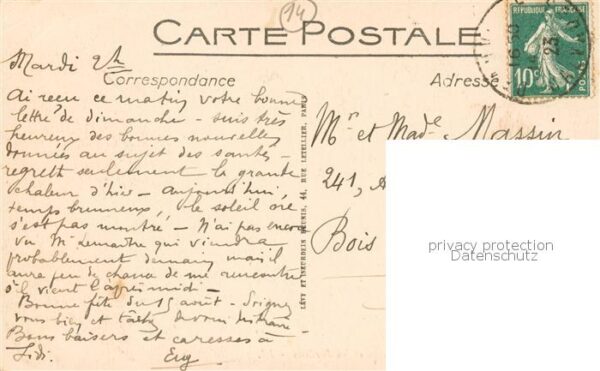 14
CARTE POSTALE
RÉPUBLIQUE FRANÇAISE
10c
POSTES
23
Mardi 2h
Correspondance
Adresse
Ai reçu ce matin votre bonne
lettre de dimanche - suis très
heureux des bonnes nouvelles
données au sujet des santés -
regrette seulement la grande
chaleur d'hier - Aujourd'hui,
temps brumeux, le soleil
s'est pas montré - N'ai pas encore
vu Mr Lemaitre qui viendra
probablement demain mais il
aura peu de chance de me rencontrer
s'il vient l'après midi -
Bonne fête du 15 août - Soignez
vous bien et
Bons baisers et caresses à
Lidi. Eug
LÉVY ET NEURDEIN RÉUNIS, 44, RUE LETELLIER, PARIS
Mr et Made Massin
241, A
Bois
privacy protection
Datenschutz